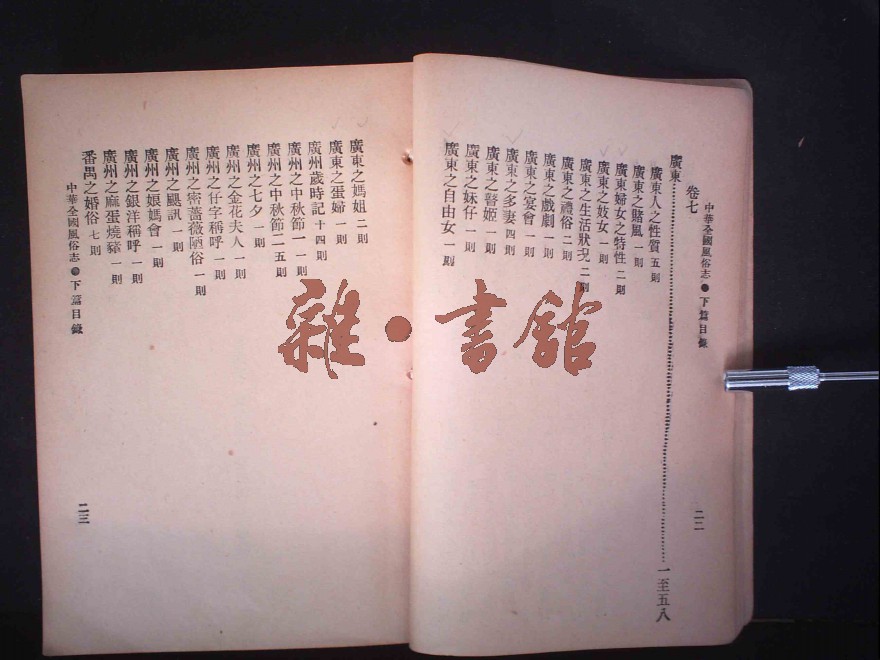 中華全國風俗志●下篇目錄
二二
卷七
廣東……一至五八
廣東人之性質 五則
廣東之賭風 一則
廣東婦女之特性 二則
廣東之妓女 一則
廣東之生活狀況 二則
廣東之禮俗 二則
廣東之戲劇 一則
廣東之宴會 一則
廣東之多妻 四則
廣東之瞽姬 一則
廣東之妹仔 一則
廣東之自由女 一則
廣東之媽姐 二則
廣東之蛋婦 一則
廣州歲時記 十四則
廣州之中秋節一 一則
廣州之中秋節二 五則
廣州之七夕 一則
廣州之金花夫人 一則
廣州之仔字稱呼 一則
廣州之密薔薇陋俗 一則
廣州之颶訊 一則
廣州之娘媽會 一則
廣州之銀洋稱呼 一則
廣州之麻蛋燒豬 一則
番禺之婚俗 七則
中華全國風俗志●下篇目錄
二三
雜·書館